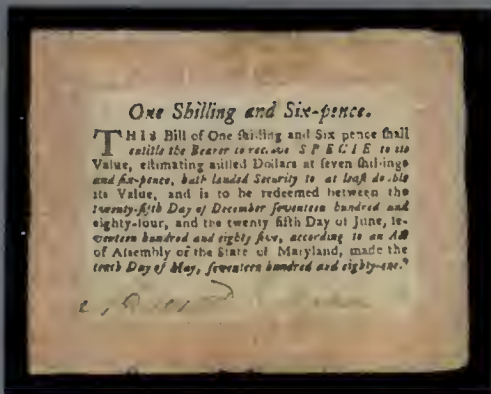 One Shilling and Six-pence.
THIS Bill of One ſhilling and Six pence ſhall
entitle the Bearer to receive SPECIE to its
Value, eſtimating milled Dollars at ſeven ſhillings
and ſix-pence, hath landed Security to at leaſt double
its Value, and is to be redeemed between the
twenty-fifth Day of December ſeventeen hundred and
eighty-four, and the twenty fifth Day of June, ſe-
venteen hundred and eighty five, according to an Act
of Aſſembly of the State of Maryland, made the
tenth Day of May, ſeventeen hundred and eighty-one.